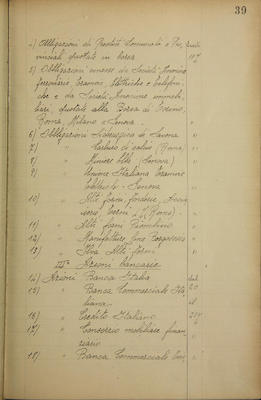 39
4) Obbligazioni di Prestiti Comunali e Pro,
vinciali quotate in borsa
5) Obbligazioni emesse da Società Anonime
ferroviarie, tramvie, Elettriche e telefoni,
che e da Società Anonime immobi,
liari, quotate alla Borsa di
Roma, Milano e Genova.
6) Obbligazioni Siderurgica di Savona "
7) " Carburo di calcio (Roma) "
8) " Miniere Elba (Genova) "
9) " Unione Italiana tramvie
Genova "
10) " Alti forni, fonderie, Accia
ierie, Terni (Roma) "
11) " Alti forni Piombino "
12) " Manifatture "
13) " Ilva Alti forni "
III° Azioni bancarie
14) Azioni Banca Italia
15) " Banca Commerciale Ita
liana
16) " Credito Italiano
17) " Consorzio mobiliare finan
ziario "
18) " Banca Commerciale